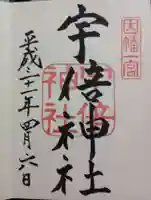 因幡一宮
宇倍神社
宇倍
神社
平成二十一年四月六日